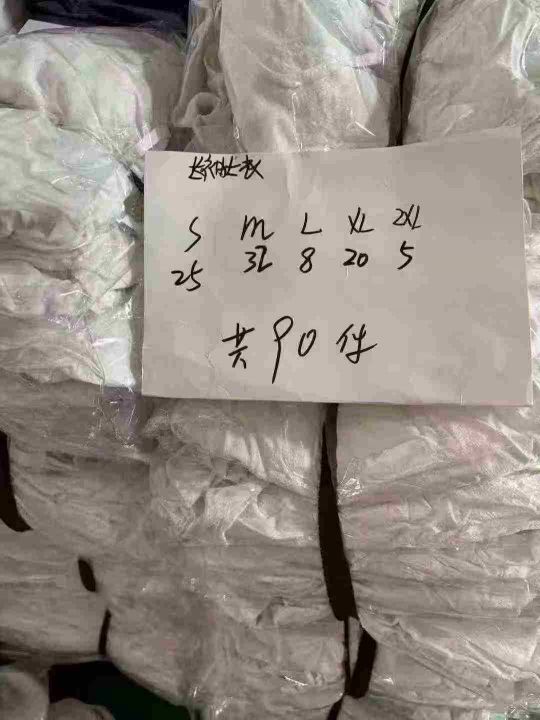 S M L XL 2XL
25 32 8 20 5
共90件